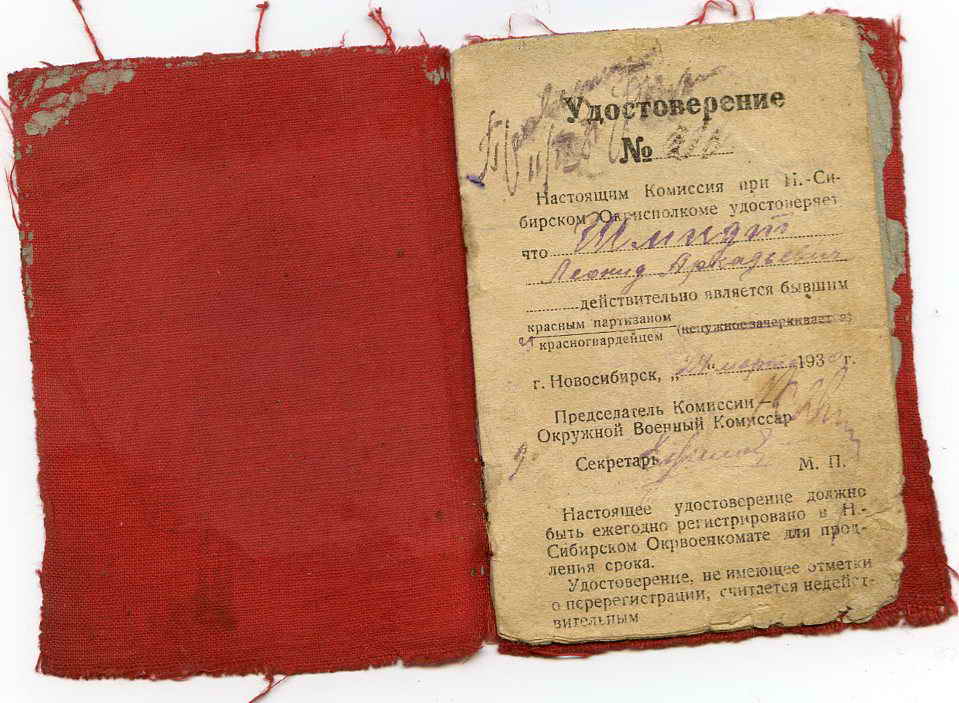 Удостоверение
№
Настоящим Комиссия при Н.-Си-
бирском Окрисполкоме удостоверяет
что Шмидт
Леонид Аркадьевич
действительно является бывшим
красным партизаном
красногвардейцем (ненужное зачеркивается)
г. Новосибирск, „ марта 193 г.
Председатель Комиссии—
Окружной Военный Комиссар
Секретарь
М. П.
Настоящее удостоверение должно
быть ежегодно регистрировано в Н.-
Сибирском Окрвоенкомате для прод-
ления срока.
Удостоверение, не имеющее отметки
о перерегистрации, считается недейст-
вительным